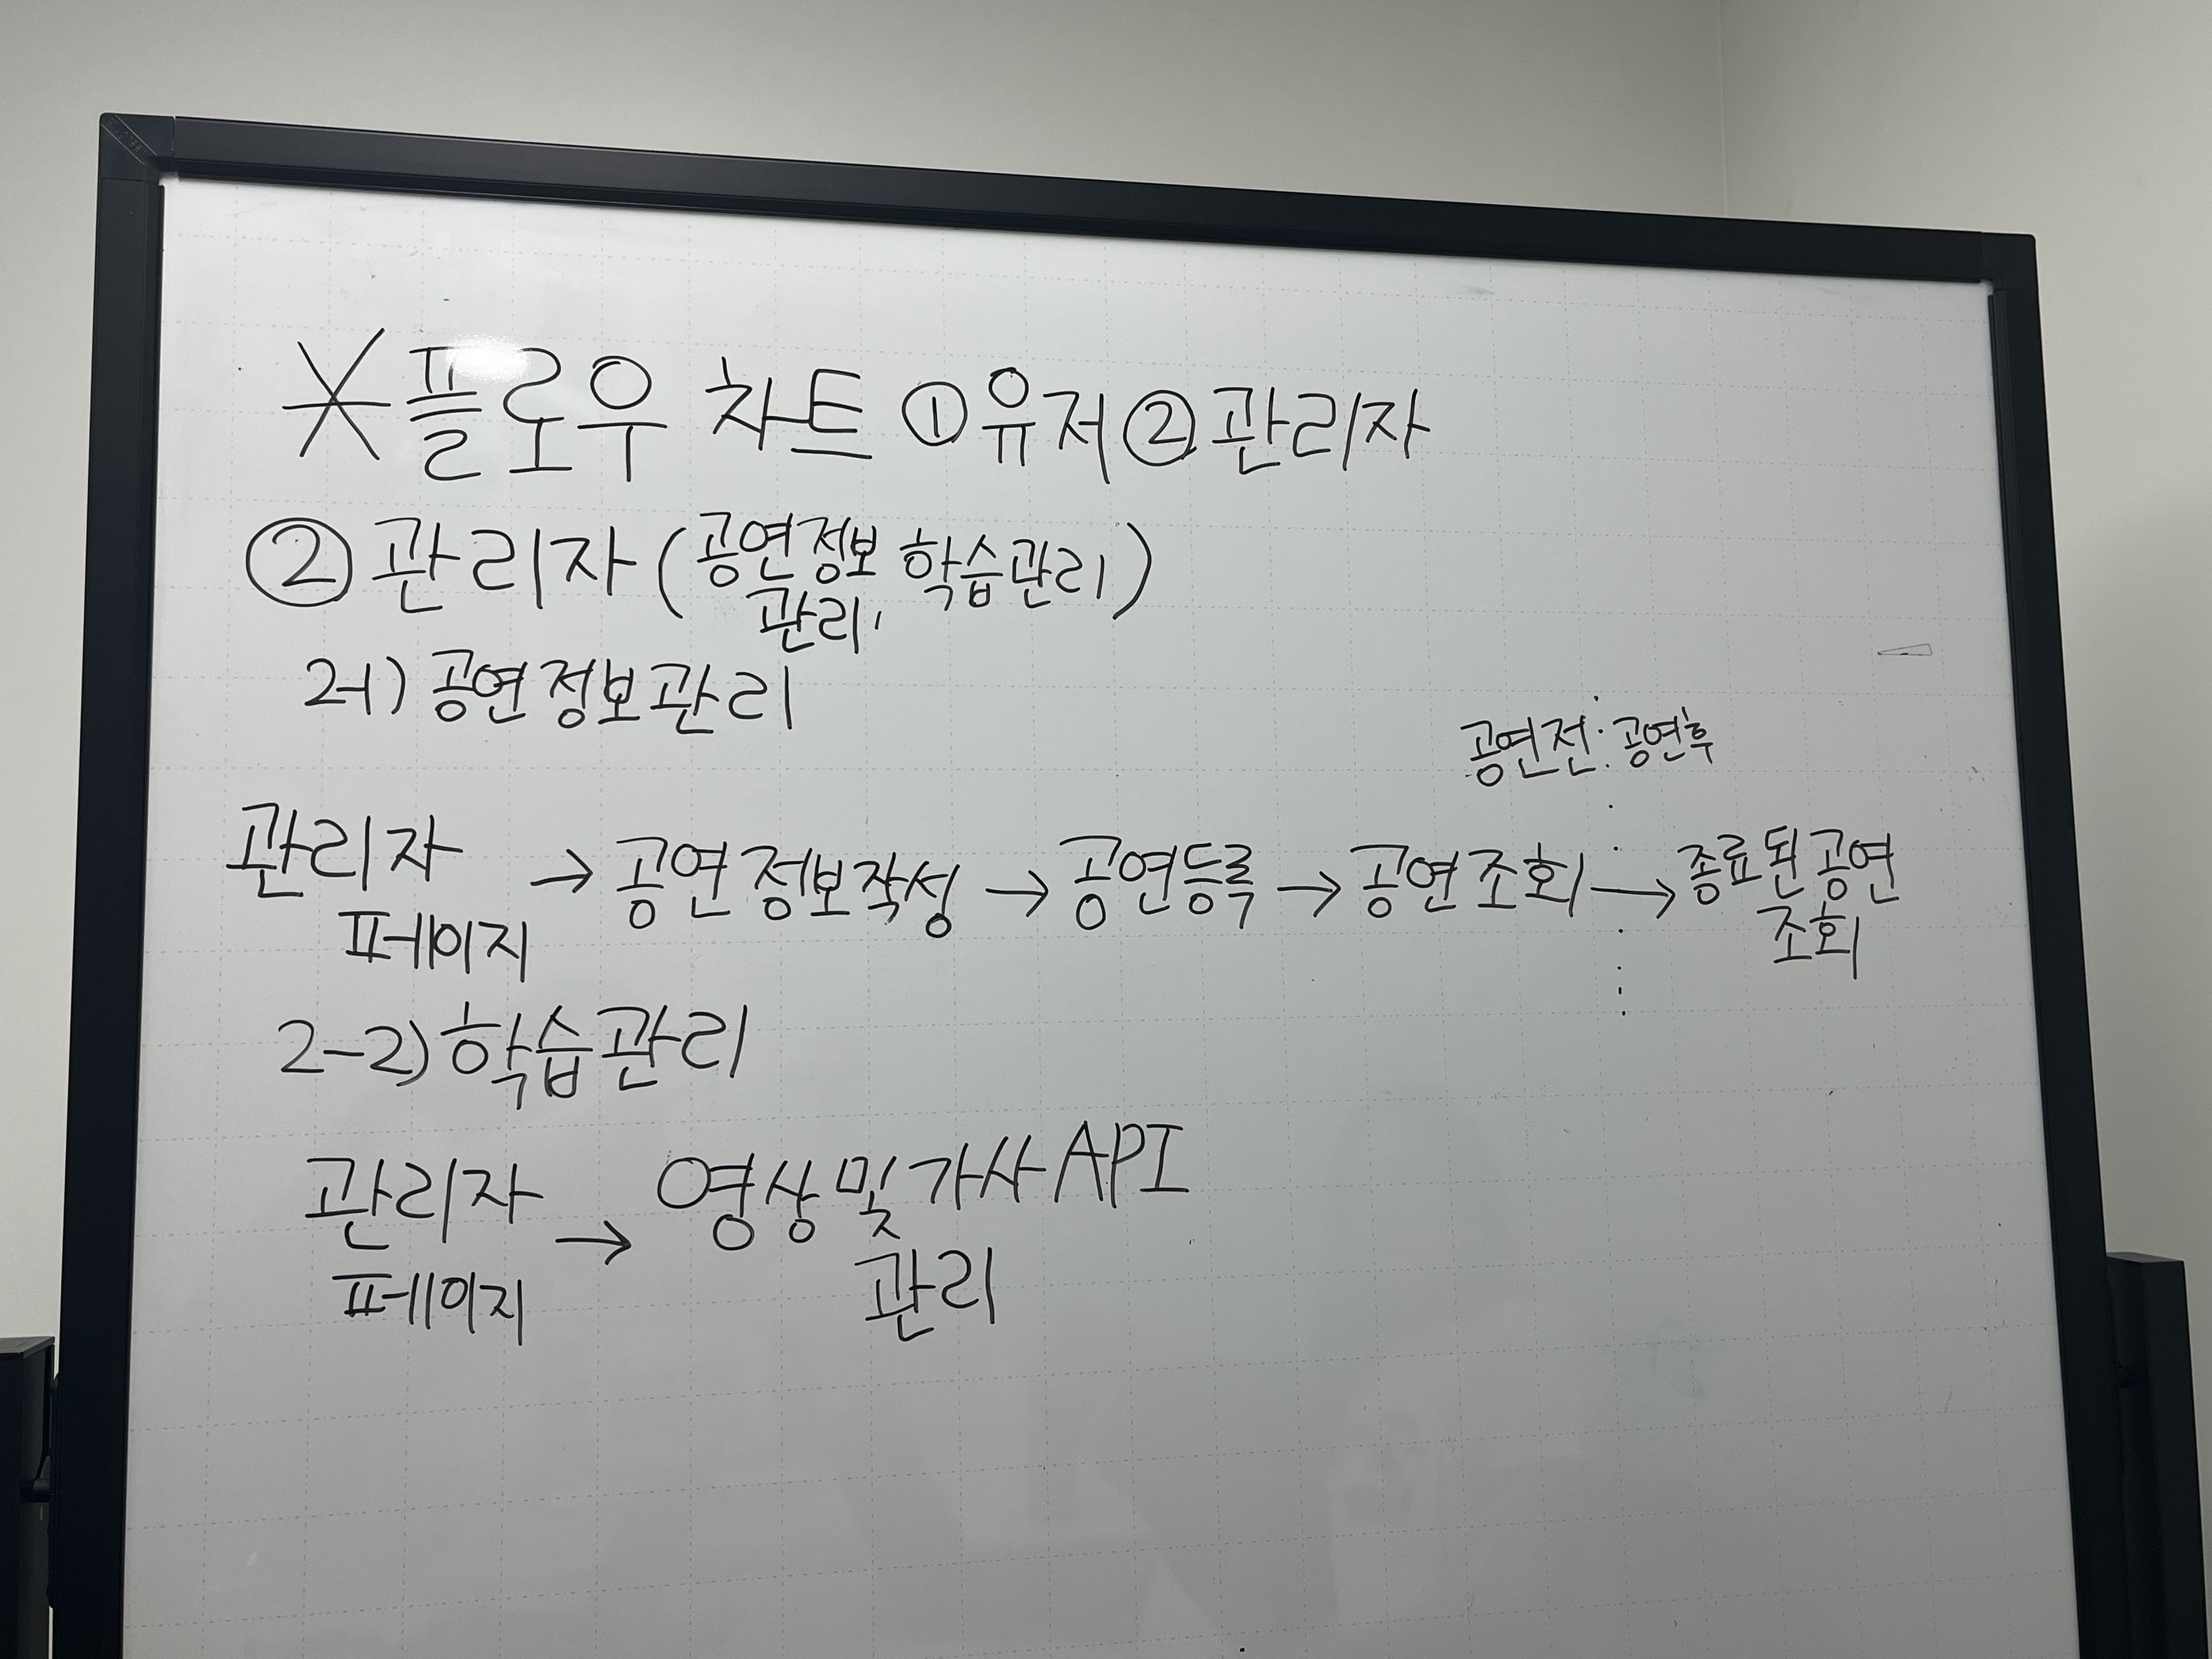 *플로우 차트 ①유저 ②관리자
②관리자(공연정보 학습관리)
관리,
2-1) 공연정보관리
공연전 공연후
관리자 → 공연정보작성 → 공연등록 → 공연조회 → 종료된공연
페이지 조회
2-2) 학습관리
관리자 → 영상 및 가사 API
페이지 관리